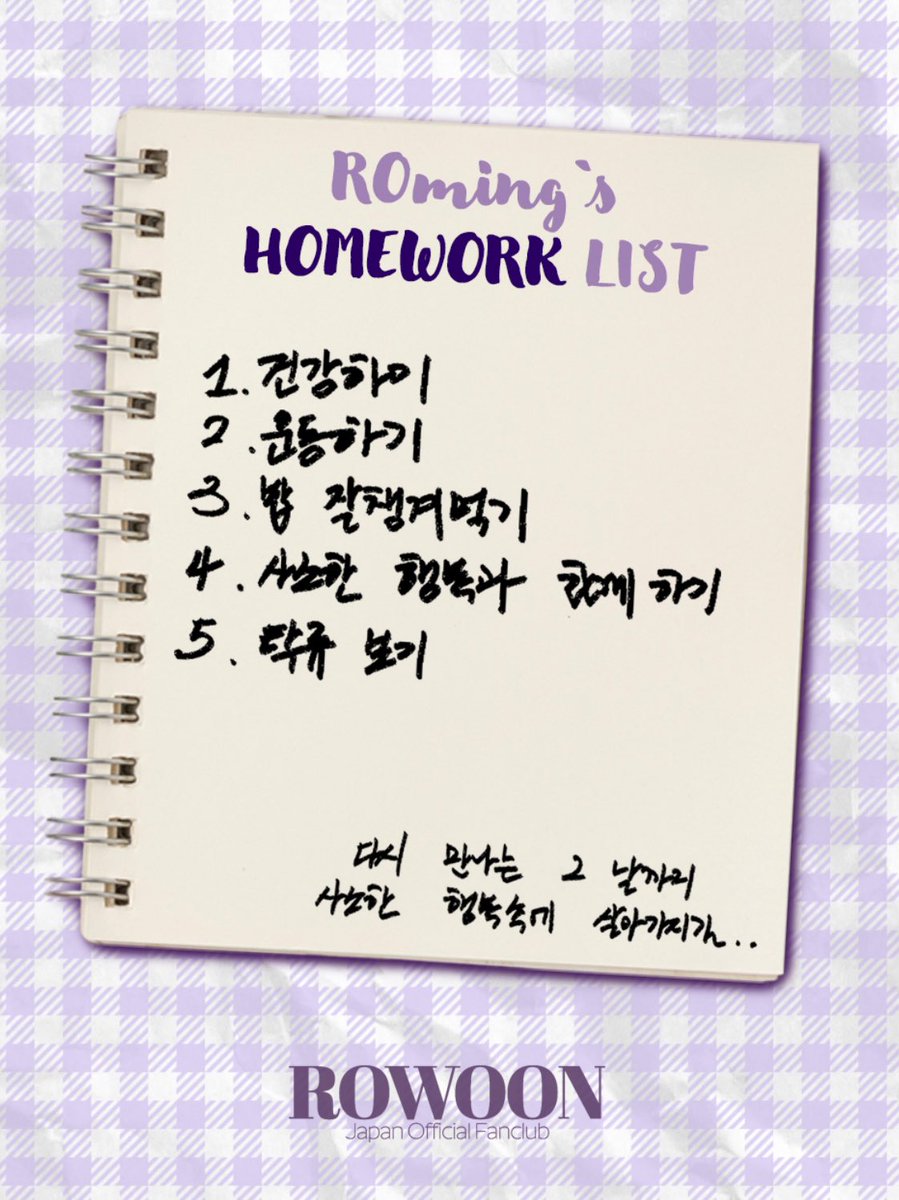 ROming`s
HOMEWORK LIST
1. 건강하기
2. 운동하기
3. 밥 잘챙겨먹기
4. 사소한 행복과 함께 하기
5. 탁류 보기
다시 만나는 그 날까지
사소한 행복속에 살아가지길..
ROWOON
Japan Official Fanclub